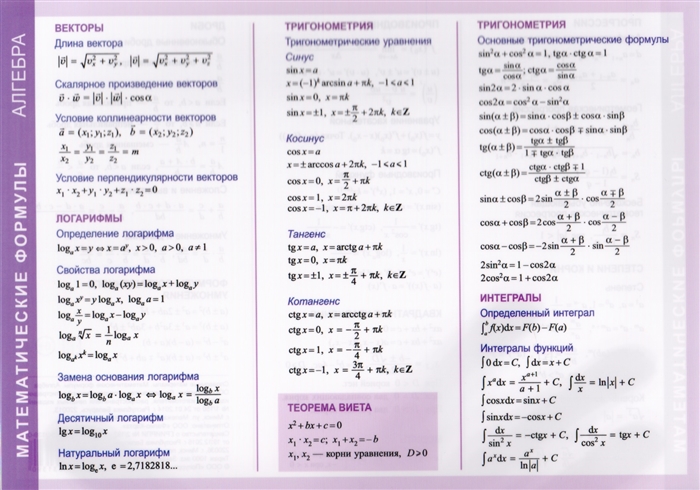 МАТЕМАТИЧЕСКИЕ ФОРМУЛЫ АЛГЕБРА
ВЕКТОРЫ
Длина вектора
|v⃗| = √(vₓ² + v_y²), |v⃗| = √(vₓ² + v_y² + v_z²)
Скалярное произведение векторов
v⃗ · w⃗ = |v⃗| · |w⃗| · cosα
Условие коллинеарности векторов
a⃗ = (x₁; y₁; z₁), b⃗ = (x₂; y₂; z₂)
x₁/x₂ = y₁/y₂ = z₁/z₂ = m
Условие перпендикулярности векторов
x₁ · x₂ + y₁ · y₂ + z₁ · z₂ = 0
ЛОГАРИФМЫ
Определение логарифма
logₐx = y ⇔ x = aʸ, x>0, a>0, a≠1
Свойства логарифма
logₐ1=0, logₐ(xy)=logₐx+logₐy
logₐxʸ = y logₐx, logₐa=1
logₐ x/y = logₐx − logₐy
logₐ ⁿ√x = 1/n logₐx
Замена основания логарифма
log_b x = log_b a · logₐx ⇔ logₐx = log_b x / log_b a
Десятичный логарифм
lg x = log₁₀x
Натуральный логарифм
ln x = logₑx, e = 2,7182818...
ТРИГОНОМЕТРИЯ
Тригонометрические уравнения
Синус
sin x = a
x = (−1)ᵏ arcsin a + πk, −1<a<1
sin x = 0, x = πk
sin x = ±1, x = ±π/2 + 2πk, k∈Z
Косинус
cos x = a
x = ± arccos a + 2πk, −1<a<1
cos x = 0, x = π/2 + πk
cos x = 1, x = 2πk
cos x = −1, x = π + 2πk, k∈Z
Тангенс
tg x = a, x = arctg a + πk
tg x = 0, x = πk
tg x = ±1, x = ±π/4 + πk, k∈Z
Котангенс
ctg x = a, x = arcctg a + πk
ctg x = 0, x = −π/2 + πk
ctg x = 1, x = −π/4 + πk
ctg x = −1, x = 3π/4 + πk, k∈Z
ТЕОРЕМА ВИЕТА
x² + bx + c = 0
x₁ · x₂ = c; x₁ + x₂ = −b
x₁, x₂ — корни уравнения, D>0
ТРИГОНОМЕТРИЯ
Основные тригонометрические формулы
sin²α + cos²α = 1, tgα · ctgα = 1
tgα = sinα/cosα; ctgα = cosα/sinα
sin2α = 2 · sinα · cosα
cos2α = cos²α − sin²α
sin(α ± β) = sinα · cosβ ± cosα · sinβ
cos(α ± β) = cosα · cosβ ∓ sinα · sinβ
tg(α ± β) = (tgα ± tgβ)/(1 ∓ tgα · tgβ)
ctg(α ± β) = (ctgα · ctgβ ∓ 1)/(ctgβ ± ctgα)
sinα ± cosβ = 2sin (α ± β)/2 · cos (α ∓ β)/2
cosα + cosβ = 2cos (α + β)/2 · cos (α − β)/2
cosα − cosβ = −2sin (α + β)/2 · sin (α − β)/2
2sin²α = 1 − cos2α
2cos²α = 1 + cos2α
ИНТЕГРАЛЫ
Определенный интеграл
∫ₐᵇ f(x)dx = F(b) − F(a)
Интегралы функций
∫0dx = C, ∫dx = x + C
∫xᵃdx = xᵃ⁺¹/(a + 1) + C, ∫dx/x = ln|x| + C
∫cosxdx = sinx + C
∫sinxdx = −cosx + C
∫dx/sin²x = −ctgx + C, ∫dx/cos²x = tgx + C
∫aˣdx = aˣ/ln|a| + C